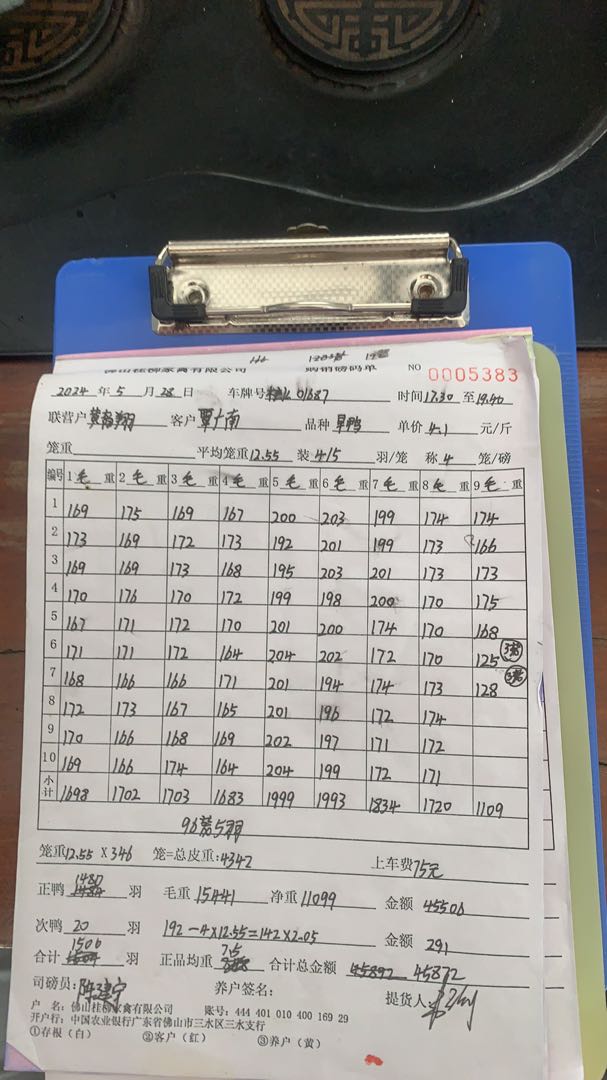 佛山桂柳家禽有限公司 购销磅码单 NO 0005383
2024 年 5 月 28 日 车牌号 01687 时间 17.30 至 19.40
联营户 客户 覃广南 品种 旱鸭 单价 4.1 元/斤
笼重 平均笼重 12.55 装 4/5 羽/笼 称 4 笼/磅
编号 1 毛 重 2 毛 重 3 毛 重 4 毛 重 5 毛 重 6 毛 重 7 毛 重 8 毛 重 9 毛 重
1 169 175 169 167 200 203 199 174 174
2 173 169 172 173 192 201 199 173 166
3 169 169 173 168 195 203 201 173 173
4 170 176 170 172 199 198 200 170 175
5 167 171 172 170 201 200 174 170 168
6 171 171 172 164 204 202 172 170 125 3笼
7 168 166 166 171 201 194 174 173 128 3笼
8 172 173 167 165 201 196 172 174
9 170 166 168 169 202 197 171 172
10 169 166 174 164 204 199 172 171
小计 1698 1702 1703 1683 1999 1993 1834 1720 1109
96笼5羽
笼重 12.55 X 346 笼=总皮重: 4342 上车费 75元
正鸭 1480 羽 毛重 15441 净重 11099 金额 45506
次鸭 20 羽 192-4×12.55=142×2.05 金额 291
合计 1500 羽 正品均重 7.5 合计总金额 45892 45872
司磅员: 陈建宁 养户签名: 提货人:
户 名: 佛山桂柳家禽有限公司 账号: 444 401 010 400 169 29
开户行: 中国农业银行广东省佛山市三水区三水支行
①存根(白) ②客户(红) ③养户(黄)